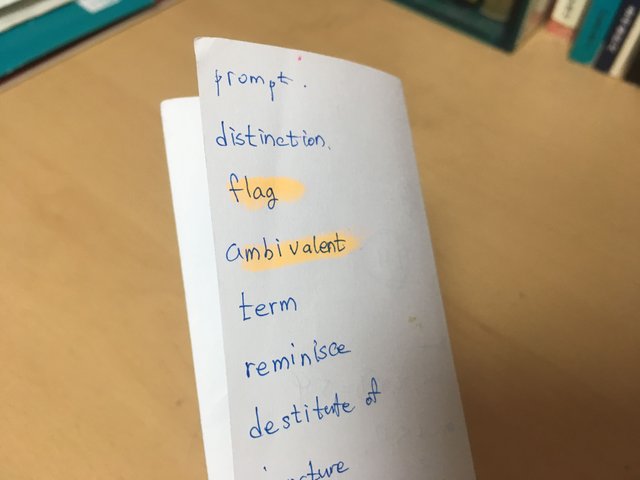 prompt.
distinction.
flag
ambivalent
term
reminisce
destitute of